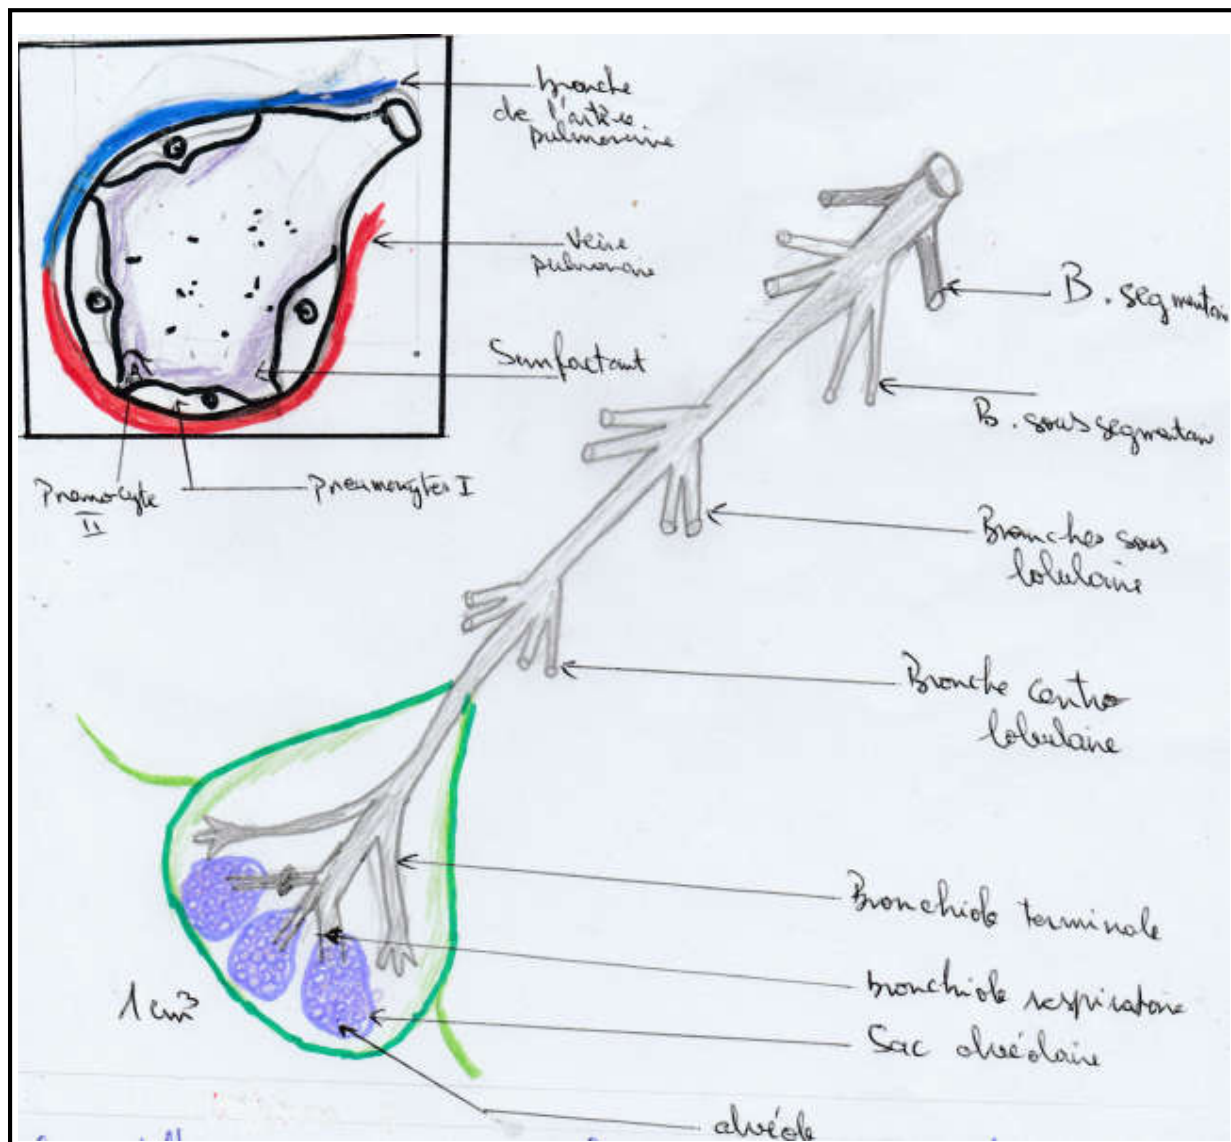 bronche
de l'artère
pulmonaire
Veine
pulmonaire
Surfactant
Pnemocyte
II
pneumocytes I
B. segmentaire
B. sous segmentaire
Bronches sous
lobulaire
Bronche centro
lobulaire
Bronchiole terminale
bronchiole respiratoire
Sac alvéolaire
alvéole
1 cm³